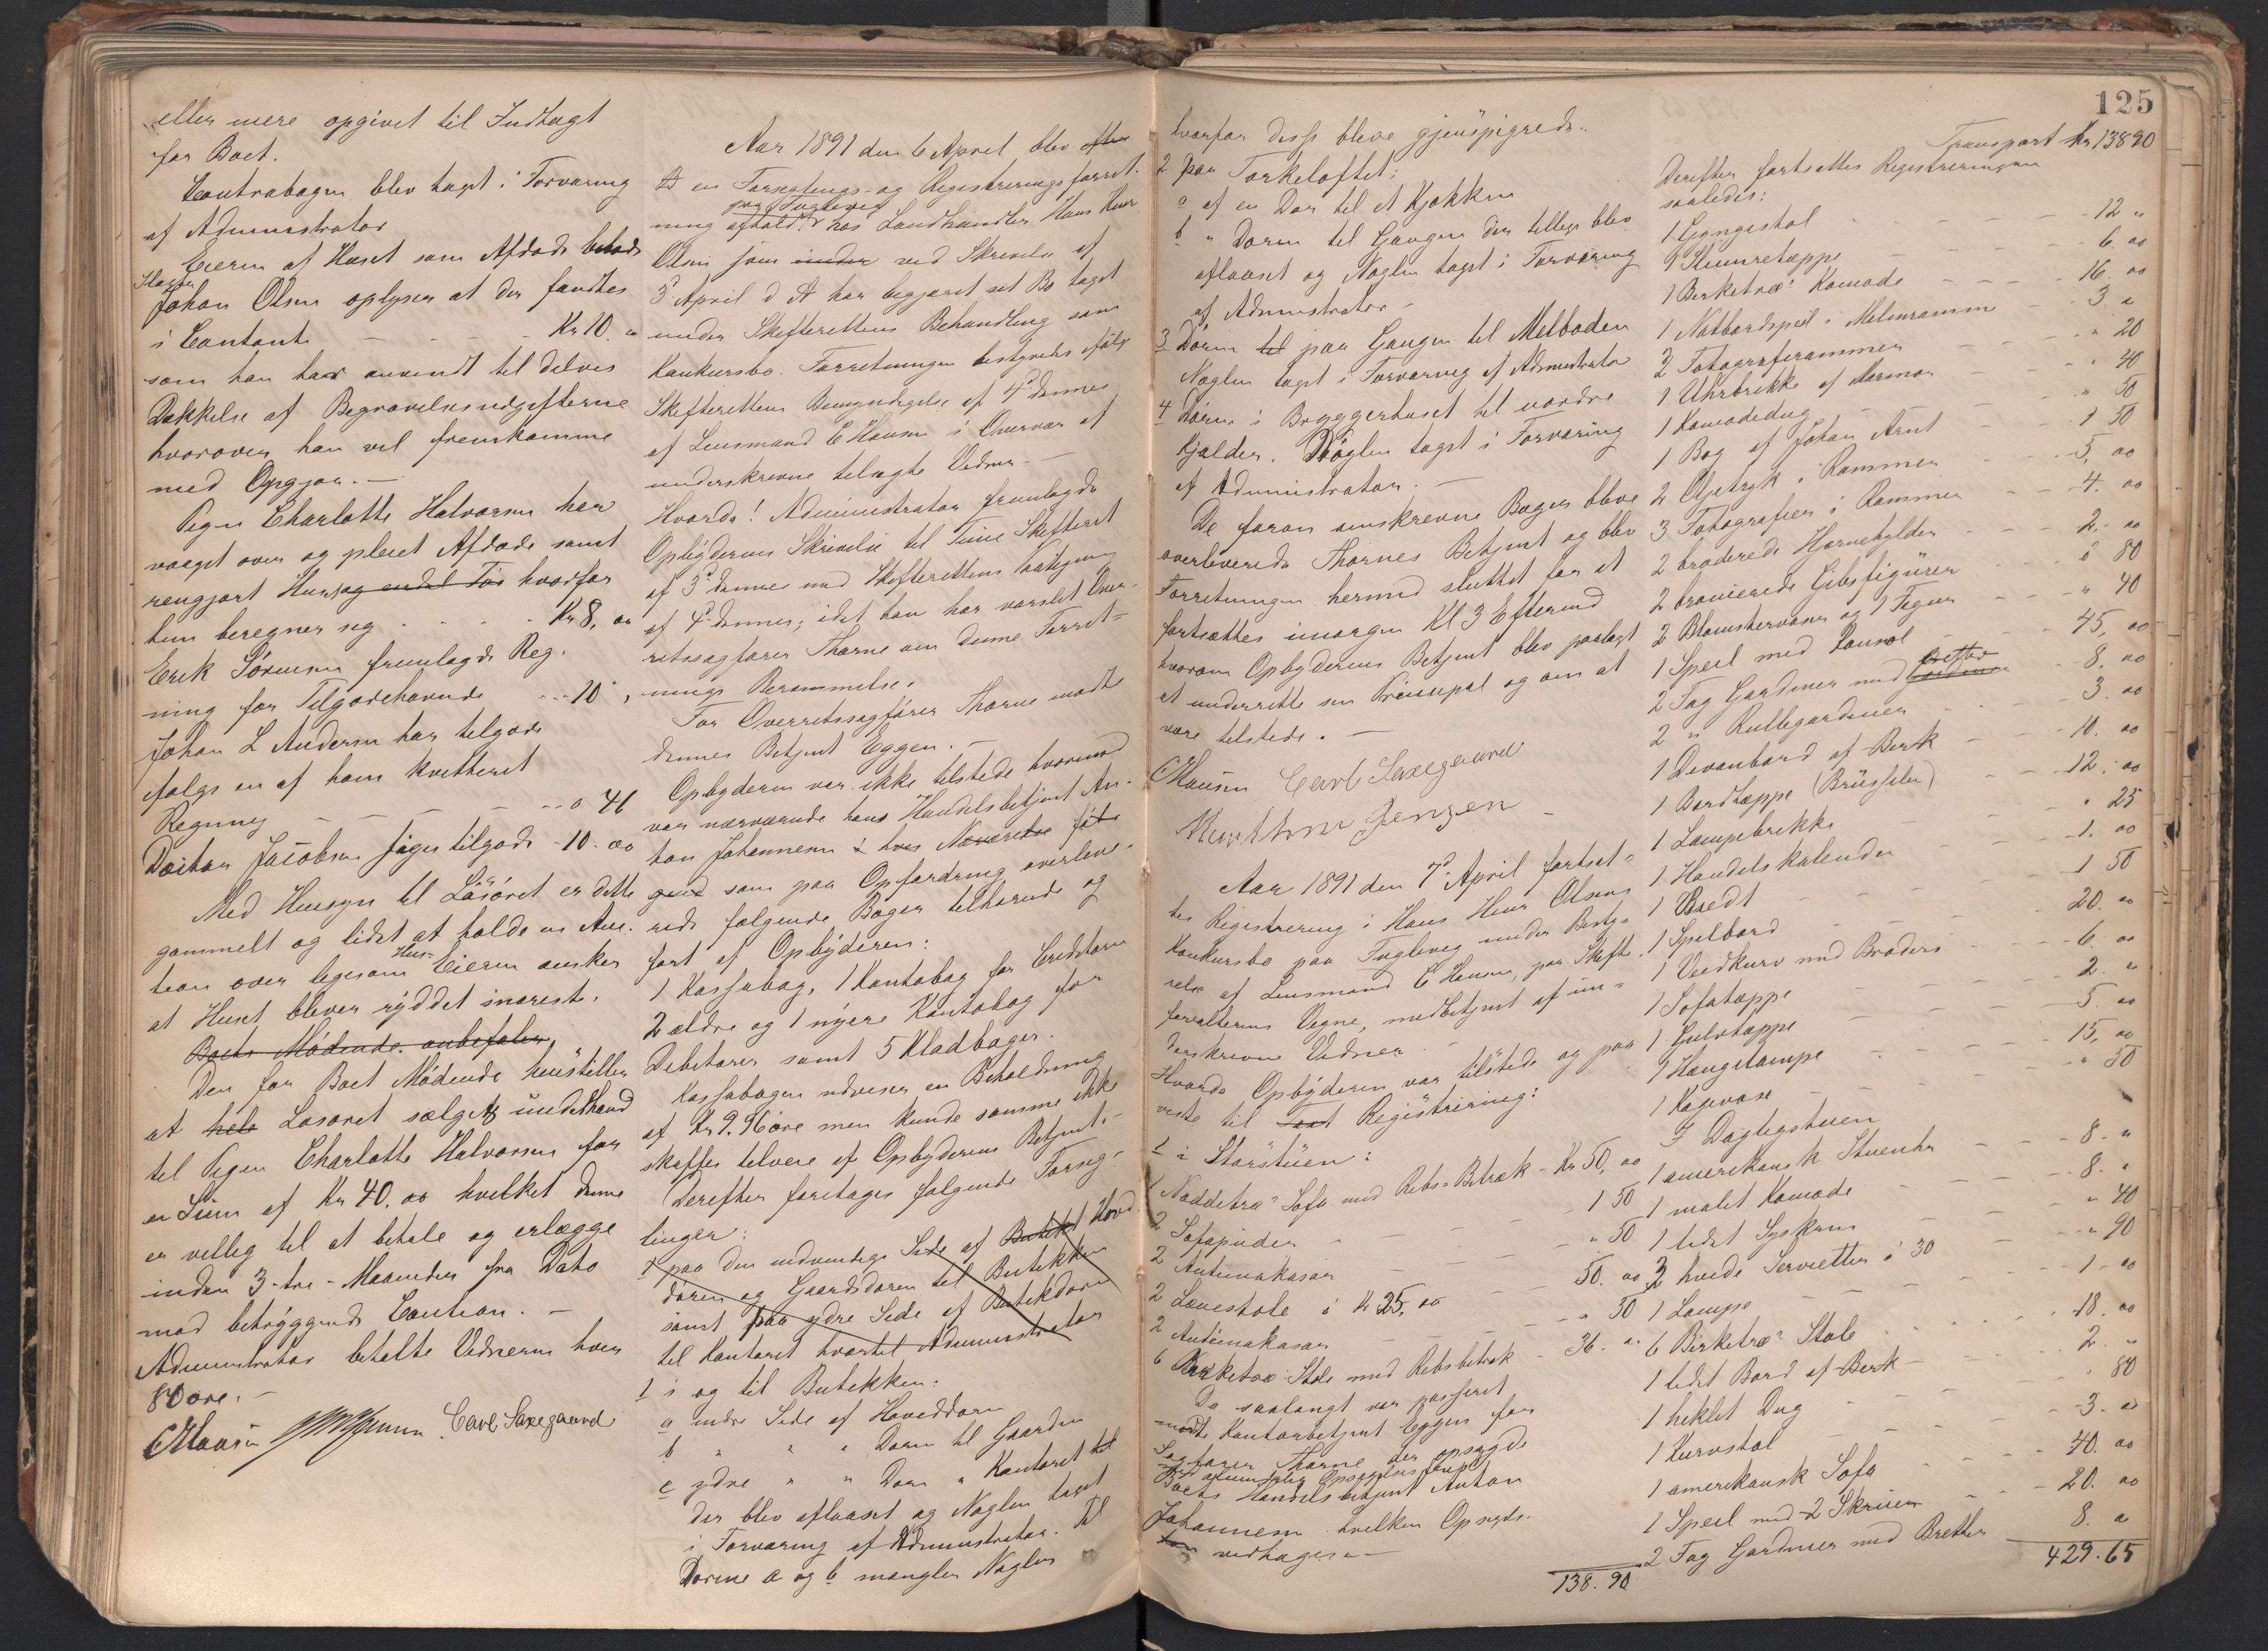 eller mere opgivet til Indtægt
for Boet.
Contrabogen blev taget i Forvaring
af Administrator
Eieren af Huset som Afdøde beboede
Slagter
Johan Olsen oplyser at der fandtes
i Contant - - - Kr 10. "
som han har anvendt til delvis
Dækkelse af Begravelsesudgifterne
hvorover han vil fremkomme
med Opgjør. -
Pigen Charlotte Halvorsen har
vaaget over og pleiet Afdøde samt
rengjort Huset og endel Tøi hvorfor
hun beregner sig - - - Kr 8, oo
Erik Sørensen fremlagde Reg.
ning for Tilgodehavende - - - 10 "
Johan L Andersen har tilgode
ifølge en af ham kvitteret
Regning - - - - - o 46
Doctor Jacobsen siges tilgode - 10. oo
Med Hensyn til Løsøret er dette
gammelt og lidet at holde en Auc-
tion over ligesom Hus-Eieren ønsker
at Huset bliver ryddet snarest.
Boets Mødende anbefaler
Den for Boet Mødende henstiller
at hele Løsøret sælges underhaand
til Pigen Charlotte Halvorsen for
en Sum af Kr 40. oo hvilket denne
er villig til at betale og erlægge
inden 3 - tre - Maaneder fra Dato
mod betryggende Caution. -
Administrator betalte Vidnerne hver
80 øre. -
C Hansen Carl Saxegaard
Aar 1891 den 6 April blev efter
en Forseglings- og Registreringsforret-
ning afholdt paa Fuglevig hos Landhandler Hans Henr
Olsen som under ved Skrivelse af
3 April d A har begjæret sit Bo taget
under Skifterettens Behandling som
Konkursbo. Forretningen bestyredes ifølge
Skifterettens Bemyndigelse af 4d dennes
af Lensmand C Hansen i Overvær af
underskrevne tilsagte Vidner. -
Hvorda! Administrator fremlagde
Opbyderens Skrivelse til Tune Skifteret
af 3d denne med Skifterettens Paategning
af 4d dennes; idet han har varslet Over-
retssagfører Thorne om denne Forret-
nings Berammelse.
For Overretssagfører Thorne mødte
dennes Betjent Eggen. -
Opbyderen var ikke tilstede hvorimod
var nærværende hans Handelsbetjent An-
ton Johannesen i hvis Nærværelseføl-
gende som paa Opfordring overleve-
rede følgende Bøger tilhørende og
ført af Opbyderen:
1 Kassabog, 1 Kontobog for Creditorer
2 ældre og 1 nyere Kontobog for
Debitorer samt 5 Kladbøger.
Kassabogen udviser en Beholdning
af Kr 9. 96 øre men kunde samme ikke
skaffes tilveie af Opbyderens Betjent. -
Derefter foretoges følgende Forseg-
linger:
1 paa den indvendige Side af Butiket Hoved
døren og Gaardsdøren til Butikken
samt paa ydre Side af Butikdøren
til Kontoret hvortil Administrator
1 i og til Butikken:
a indre Side af Hoveddøren
b " " " Døren til Gaarden
c ydre " " Døren " Kontoret
der blev aflaaset og Nøglen taget
i Forvaring af Administrator. Til
Dørene a og b mangler Nøgler
125
hvorfor disse bleve gjenspigrede.
2 paa Tørkeloftet:
a af en Dør til et Kjøkken
b " Døren til Gangen der tillige blev
aflaaset og Nøglen taget i Forvaring
af Administrator -
3 Døren til paa Gangen til Melboden
Nøglen taget i Forvaring af Administrator
4 Døren i Bryggerhuset til nordre
Kjælder. Nøglen taget i Forvaring
af Administrator. -
De foran omskrevne Bøger bleve
overleverede Thornes Betjent og blev
Forretningen hermed sluttet for at
fortsættes imorgen Kl 3 Eftermd
hvorom Opbyderens Betjent blev paalagt
at underrette sin Principal og om at
være tilstede. -
C Hansen Carl Saxegaard
Martin Jensen
Aar 1891 den 7d April fortsat-
tes Registrering i Hans Henr Olsens
Konkursbo paa Fuglevig under Besty-
relse af Lensmand C Hansen, paa Skifte-
forvalterens Vegne, medbetjent af un-
derskrevne Vidner -
Hvorda Opbyderen var tilstede og paa
viste til Registrering:
1 i Storstuen:
1 Nøddetræ's Sofa med Rebs-Betræk - Kr 50, oo
2 Sofapuder - - - 1 50
2 Antimakasser - - - " 50
2 Lænestole á Kr 25, oo - - 50. oo
2 Antimakasser - - - " 50
6 Birketræ Stole med Rebsbetræk - 36. "
Da saalangt var passeret
mødte Kontorbetjent Eggen for
Sagfører Thorne der opsagde
Boets Handelsbetjent Anton
Johannesen hvilken Opsigelse
vedtages. -
138. 90
Transport Kr 138 90
Derefter fortsattes Registreringen
saaledes:
1 Gyngestol - - - 12 "
1 Skindretæppe - - - 6. oo
1 Birketræ's Komode - - - 16. oo
1 Natbordspeil i Malmramme - 3 "
2 Fotografirammer - - " 20
1 Uhrbrikke af Marmor - " 40
1 Komodedug - - " 50
1 Bog af Johan Arnt - 1 50
2 Oljetryk i Rammer - - 5. oo
3 Fotografier i Rammer - - 4. oo
2 broderede Hjørnehylder - - 2. oo
2 bronserede Gibsfigurer - - o 80
2 Blomstervaser og 1 Figur - - " 40
1 Speil med Konsol - - 45, oo
2 Fag Gardiner med Bretter - 8. oo
2 " Rullegardiner - - 3. oo
1 Divanbord af Birk - - 10. oo
1 Bordtæppe (Brüsseler) - - 12. oo
1 Lampebrikke - - " 25
1 Handelskalender - - 1. oo
1 Bredt - - - 1 50
1 Spilbord - - - 20. oo
1 Vedkurv med Broderi - - 6. oo
1 Sofatæppe - - - 2. "
1 Gulvtæppe - - - 5. oo
1 Hængelampe - - - 15, oo
1 Kagevase - - - " 50
I Dagligstuen
1 amerikansk Stueuhr - - - 8. "
1 malet Komode - - - 8. "
1 lidet Syskrin - - - " 40
3 hvide Servietter á 30 - - " 90
1 Lampe - - - 1 - oo
6 Birketræ's Stole - - - 18. oo
1 lidet Bord af Birk - - - 2. "
1 heklet Dug - - - " 80
1 Kurvstol - - - 3. oo
1 amerikansk Sofa - - - 40. oo
1 Speil med 2 Skruer - - - 20. oo
2 Fag Gardiner med Bretter 8. "
429. 65